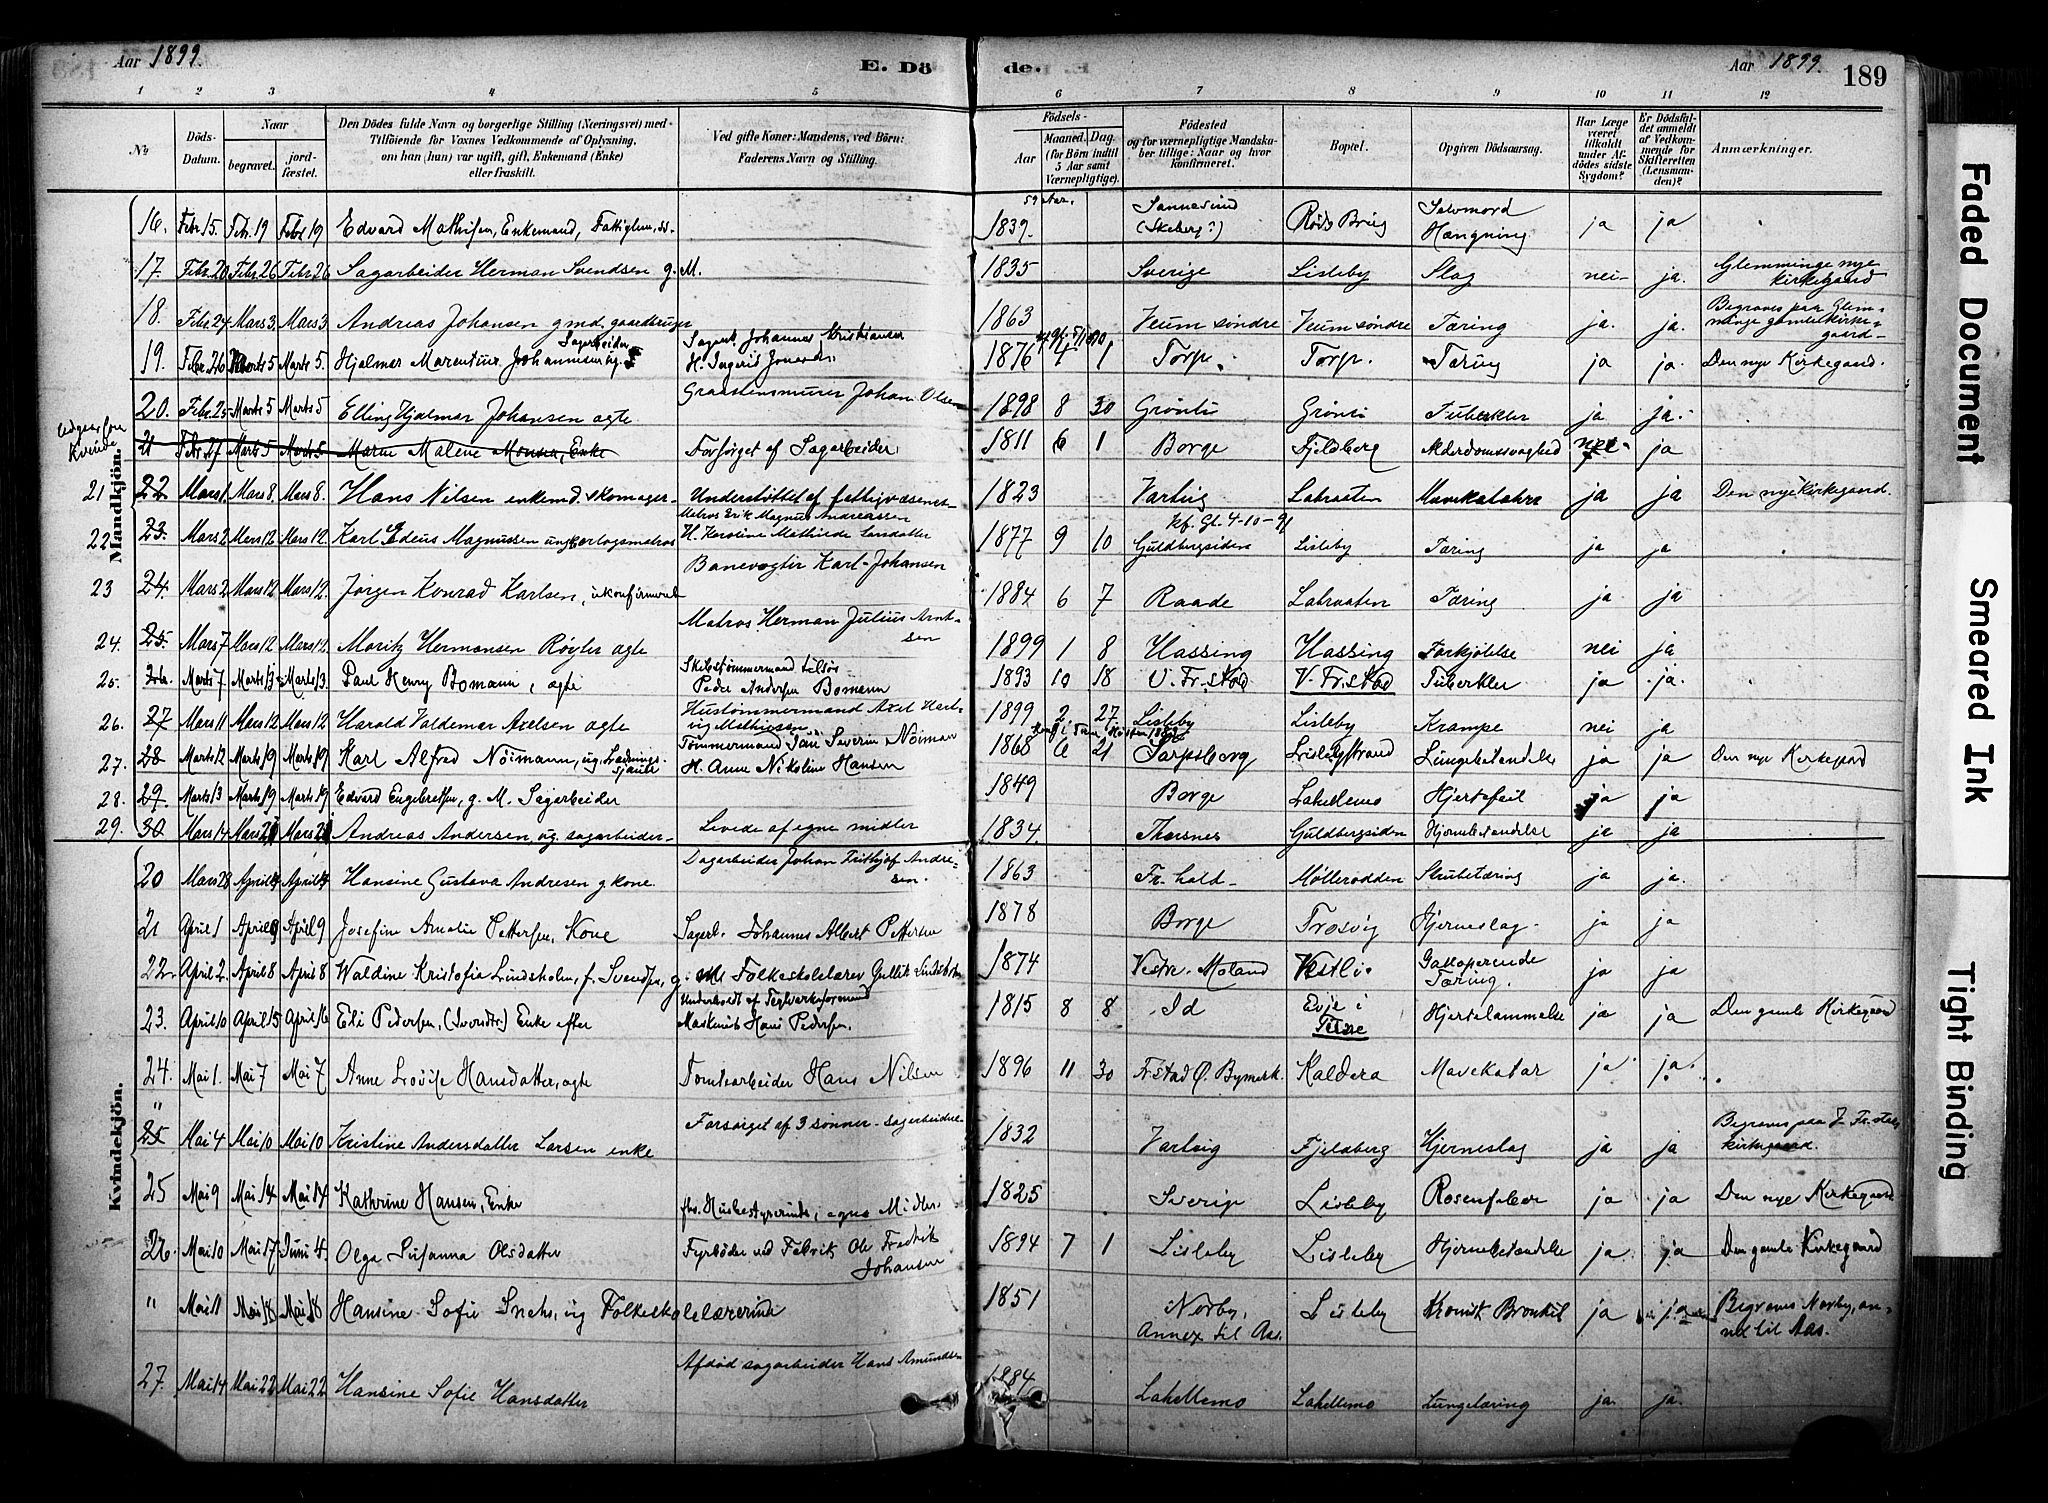 Aar 1899.
E. Dö
de.
Aar 1899.
189
1 2 3 4 5 6 7 8 9 10 11 12
No
Döds-Datum.
Naar
begravet. jordfæstet.
Den Dödes fulde Navn og borgerlige Stilling (Næringsvei) med
Tilföiende for Voxnes Vedkommende af Oplysning,
om han (hun) var ugift, gift, Enkemand (Enke)
eller fraskilt.
Ved gifte Koner: Mandens, ved Börn:
Faderens Navn og Stilling.
Födsels-
Aar Maaned. Dag.
(for Börn indtil
5 Aar samt
Værnepligtige).
Födested
og for værnepligtige Mandska-
ber tillige: Naar og hvor
konfirmeret.
Bopæl.
Opgiven Dödsaarsag.
Har Læge
været
tilkaldt
under Af-
dödes sidste
Sygdom?
Er Dödsfal-
det anmeldt
af Vedkom-
mende for
Skifteretten
(Lensman-
den)?
Anmærkninger.
Mandkjön.
59 Aar.
16. Febr 15. Febr. 19 Febr 19 Edvard Mathisen, Enkemand, 1839. Sannesund (Skeberg?) Röds Brug Selvmord Hængning ja ja
17. Febr. 20 Febr 26 Febr. 26 Sagarbeider Herman Svendsen g. M. 1835 Sverige Lisleby Slag nei ja. Glemminge nye kirkegaard
18. Febr. 24 Mars 3. Mars 3. Andreas Johansen gmd. gaardbruger 1863 Veum söndre Veum söndre Tæring ja. ja. Begraves paa Glemminge gamle kirkegaard
19. Febr. 26 Marts 5 Marts 5. Hjalmar Marentius Johannesen ug. Sagarbeider Sagarb. Johannes Kristiansen H. Ingerid 1876 4 1 Torp. Torp. Tæring ja ja. Den nye Kirkegaard.
20. Febr. 25 Marts 5 Marts 5 Elling Hjalmar Johansen ægte. Graastensmurer Johan Olsen 1898 8 30 Grönli Grönli Tuberkler ja ja.
Udgaar som Kvinde
21 Febr. 27 Marts 5 Marts 5 Maren Malene Monsen, Enke Forsörget af Sagarbeider 1811 6 1 Borge Fjeldberg Alderdomssvaghed nei ja
21 22 Mars 1 Mars 8. Mars 8. Hans Nilsen enkemd. skomager Understöttet af fattigvæsenet 1823 Varteig Labraaten Mavekatahr ja ja Den nye Kirkegaard.
22 23. Mars 2 Mars 12 Mars 12. Karl Edeus Magnussen Matros Erik Magnus Andreassen H. Karoline Mathilde Larsdatter 1877 9 10 kf. Gl. 4-10-91 Guldbergsiden Lisleby Tæring ja ja
23 24. Mars 2 Mars 12 Mars 12. Jörgen Konrad Karlsen, ukonfirmeret Banevogter Karl Johansen 1884 6 7 Raade Labraaten Tæring ja ja
24. 25. Mars 7 Mars 12 Mars 12. Moritz Hermansen Röyler ægte Matros Herman Julius Arntsen 1899 1 8 Hassing Hassing Forkjölelse nei ja
25. 26. Marts 7 Marts 13 Marts 13. Paul Henry Bomann, ægte Skibstömmermand tilsös Peder Andersen Bomann 1893 10 18 V. Fr.stad V. Fr.stad Tuberkler ja ja.
26. 27 Mars 11 Mars 12 Mars 12 Harald Valdemar Axelsen ægte Hustömmermand Axel Hartvig Mathiesen 1899 2 27. Lisleby Lisleby Krampe nei ja
27. 28 Marts 12 Marts 19 Marts 19 Karl Alfred Nöimann, ug. Tömmermand Severin Nöiman H. Anne Nikoline Hansen 1868 6 21 Sarpsborg Lislebystrand Lungebetændelse ja ja Den nye Kirkegaard
28. 29. Marts 13 Marts 19 Marts 19 Edvard Engebretsen, g. M. Sagarbeider 1849 Borge Lahellemo Hjertefeil ja ja
29. 30 Mars 14 Mars 21 Mars 21 Andreas Andersen, ug. sagarbeider Levede af egne midler 1834. Thorsnes Guldbergsiden Hjernebetændelse ja ja
Kvindekjön.
20 Mars 28 April 4 April 4 Hansine Gustava Andresen g kone. Dagarbeider Johan Frithjof Andresen. 1863 Fr.hald Mölleredden Strubetæring ja ja.
21 April 1 April 9 April 9 Josefine Amalie Pettersen, Kone Sagarb. Johannes Albert Pettersen 1878 Borge Trosvig Hjerneslag ja ja
22. April 2. April 8 April 8 Waldine Kristofia Lindholm, f. Svendsen, g. m. Folkeskolelærer Gullik Lindholm 1874 Vestre Moland Vestli Galloperende Tæring. ja ja
23. April 10 April 15 April 16 Eli Pedersen, Enke efter Underholdt af Teglverksformand Maskinist Hans Pedersen. 1815 8 8 Id Evje i Hjertelammelse ja ja Den gamle Kirkegaard
24. Mai 1. Mai 7 Mai 7 Anne Lovise Hansdatter, ægte Tomtearbeider Hans Nilsen 1896 11 30 Fr.stad Ö. Bymark. Kaldera Mavekatar ja ja.
" 25 Mai 4 Mai 10 Mai 10 Kristine Andersdatter Larsen enke Forsörget af 3 sönner - sagarbeidere 1832 Varteig Fjeldberg Hjerneslag ja ja Begraves paa Fr.stads kirkegaard.
25 Mai 9 Mai 14 Mai 14 Kathrine Hansen, Enke fhv. Husbestyrerinde, egne Midler. 1825 Sverige Lisleby Rosenfeber ja ja Den nye Kirkegaard
26. Mai 10 Mai 17 Juni 4. Olga Susanna Olsdatter Fyrböder ved Fabrik Ole Fredrik Johansen 1894 7 1 Lisleby Lisleby Hjernebetændelse ja. ja Den gamle Kirkegaard
" Mai 11 Mai 18 Mai 18 Hansine Sofie ug Folkeskolelærerinde 1851 Norby, Annex til Aas. Lisleby Kronisk Bronkit ja ja Begraves Norby, annex til Aas.
27. Mai 14 Mai 22 Mai 22 Hansine Sofie Hansdatter Afdöd sagarbeider Hans Amundsen 1884 Lahellemo Lahellemo Lungetæring ja. ja.
Faded Document
Smeared Ink
Tight Binding